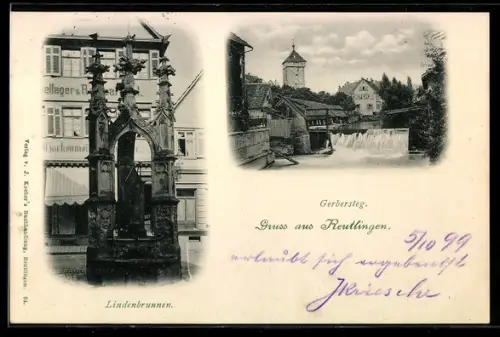 ellager &
Verlag v. J. Kocher's Buchhandlung, Reutlingen. 64.
Lindenbrunnen.
Gerbersteg.
Gruss aus Reutlingen.
5/10 99
erlaubt sich ergebenst